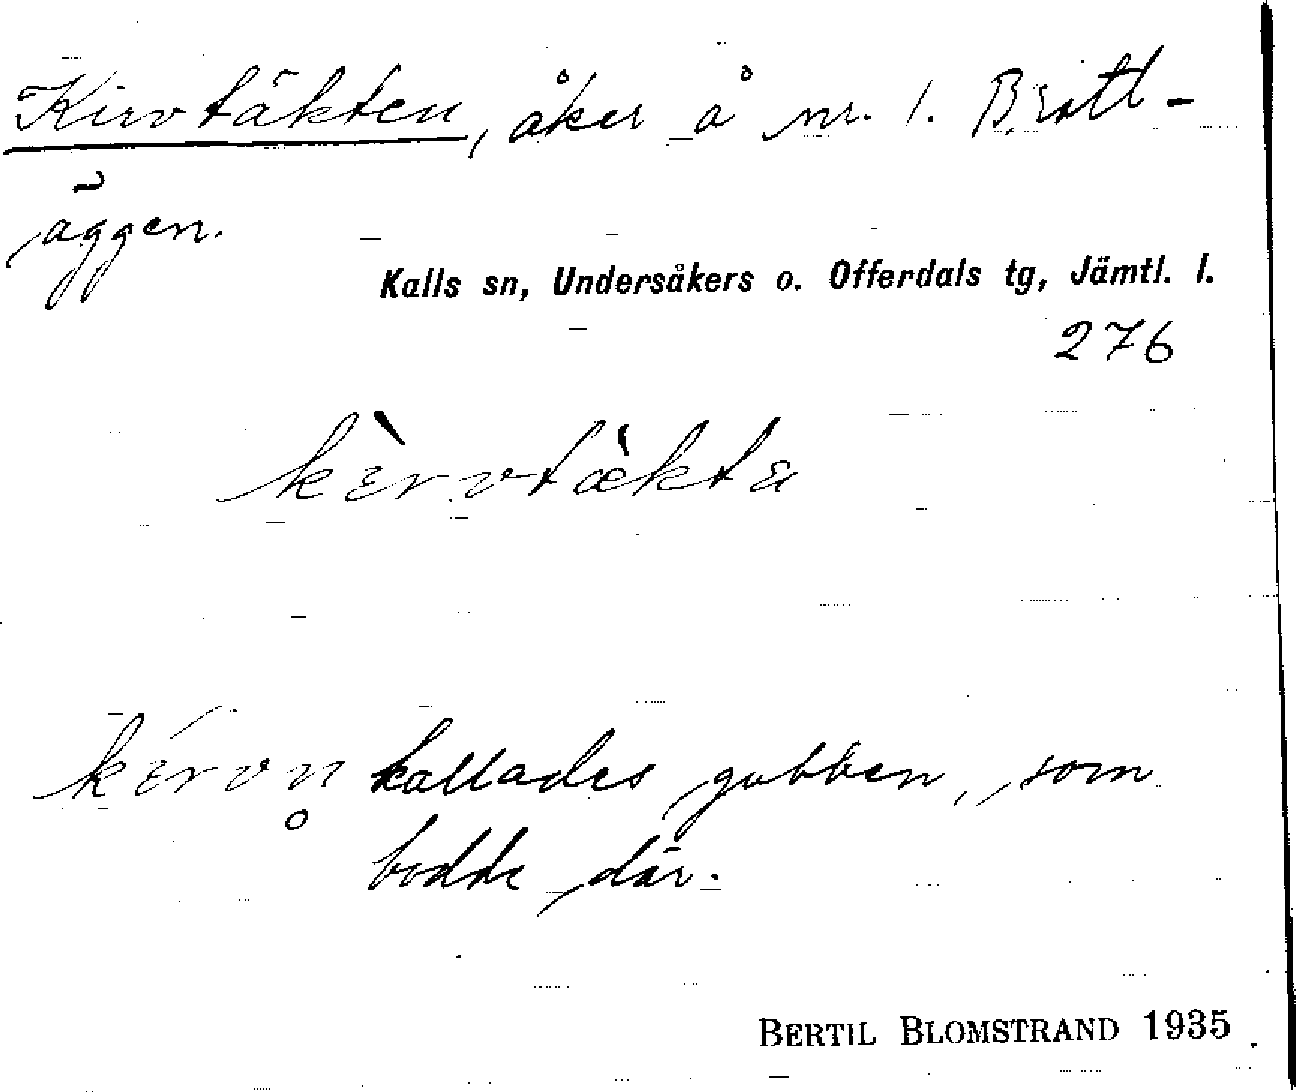 Kirvtäkten, åker å nr. 1. Bratt-
äggen.
Kalls sn, Undersåkers o. Offerdals tg, Jämtl. l.
276
kɪ̀rvtæ̀kta
kɪ́rvn̥ kallades gubben, som
bodde där.
BERTIL BLOMSTRAND 1935